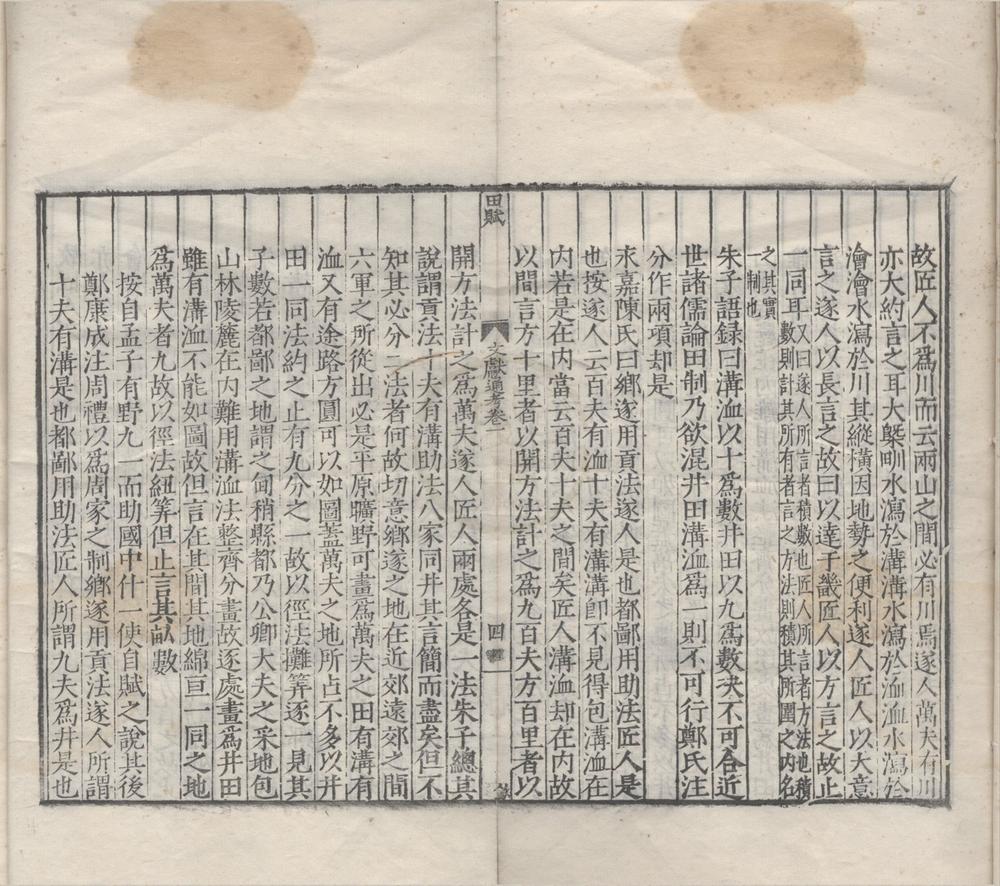 故匠人不爲川而云兩山之間必有川焉遂人萬夫有川
亦大約言之耳大槩甽水瀉於溝溝水瀉於洫洫水瀉於
澮澮水瀉於川其縱橫因地勢之便利遂人匠人以大意
言之遂人以長言之故曰以達于畿匠人以方言之故止
一同耳又曰遂人所言者積數也匠人所言者方法也積
數則計其所有者言之方法則積其所圍之内名
之其實
一制也
朱子語録曰溝洫以十爲數井田以九爲數决不可合近
世諸儒論田制乃欲混井田溝洫爲一則不可行鄭氏注
分作兩項却是
永嘉陳氏曰鄉遂用貢法遂人是也都鄙用助法匠人是
也按遂人云百夫有洫十夫有溝溝卽不見得包溝洫在
内若是在内當云百夫十夫之間矣匠人溝洫却在内故
以間言方十里者以開方法計之爲九百夫方百里者以
田賦
文獻通考卷一
四
開方法計之爲萬夫遂人匠人兩處各是一法朱子總其
說謂貢法十夫有溝助法八家同井其言簡而盡矣但不
知其必分二法者何故切意鄉遂之地在近郊遠郊之間
六軍之所從出必是平原曠野可畫爲萬夫之田有溝有
洫又有途路方圓可以如圖蓋萬夫之地所占不多以井
田一同法約之止有九分之一故以徑法攤筭逐一見其
子數若都鄙之地謂之甸稍縣都乃公卿大夫之采地包
山林陵麓在内難用溝洫法整齊分畫故逐處畫爲井田
雖有溝洫不能如圖故但言在其間其地綿亘一同之地
爲萬夫者九故以徑法紐筭但止言其畝數
按自孟子有野九一而助國中什一使自賦之說其後
鄭康成注周禮以爲周家之制鄉遂用貢法遂人所謂
十夫有溝是也都鄙用助法匠人所謂九夫爲井是也